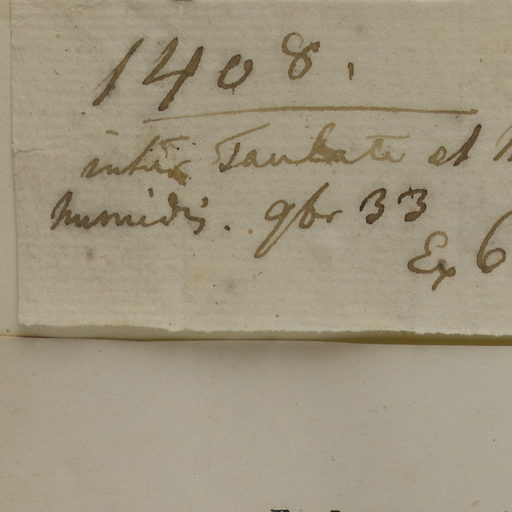 1408.
inter Taubate et
humidis. 9br 33
Ex 6